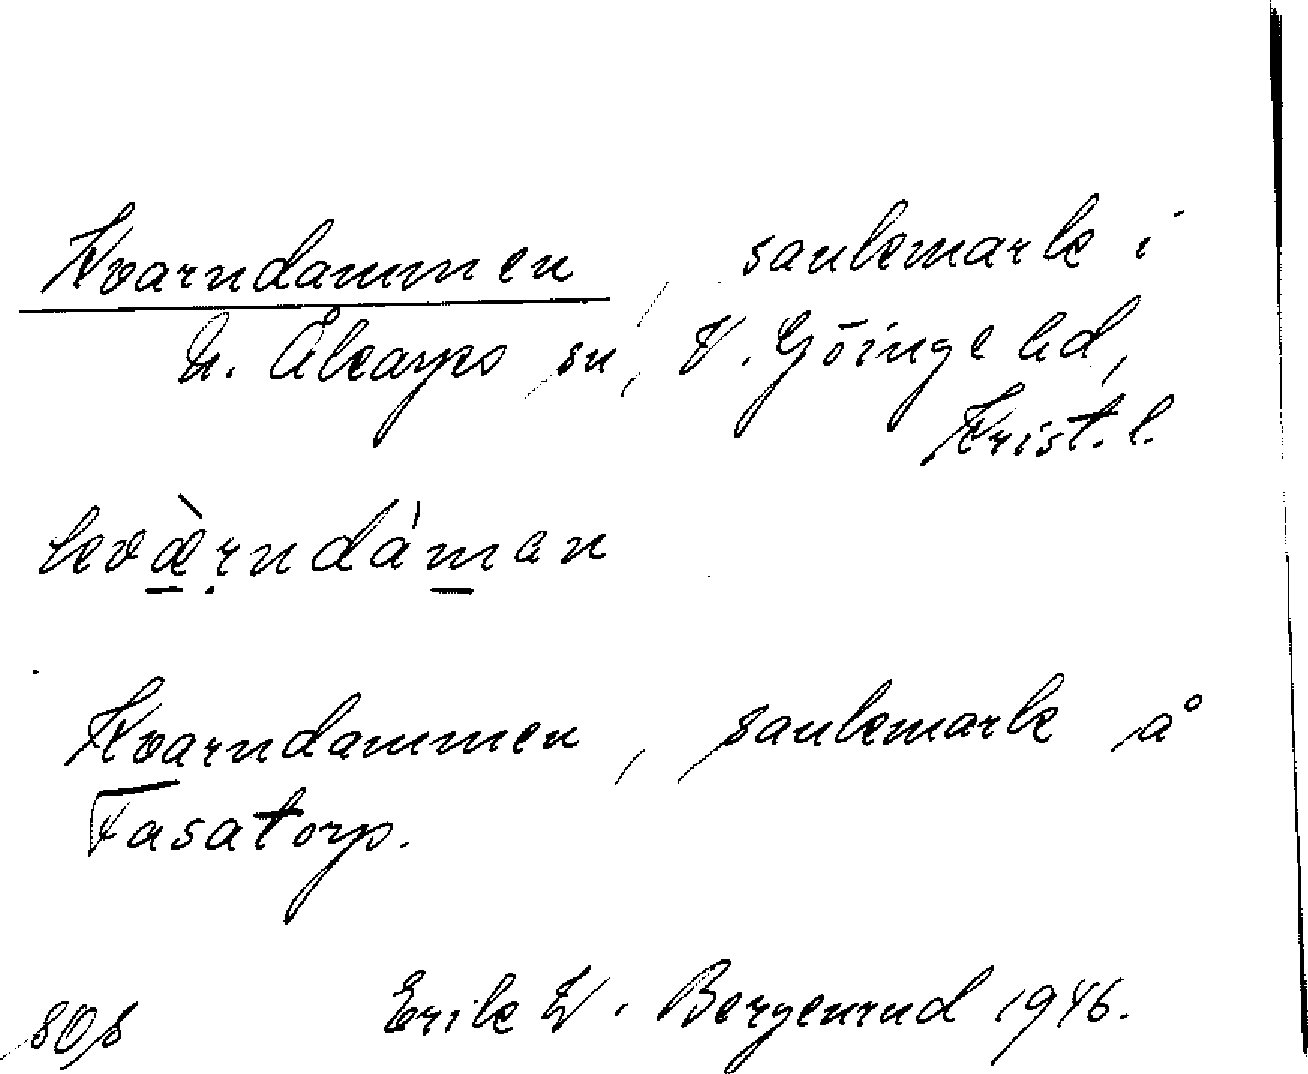 Kvarndammen, sankmark i
N. Åkarps sn, V. Göinge hd,
Krist. l.
kvæ̀rndáman
Kvarndammen, sankmark å
Fasatorp.
808 Erik W. Bergenrud 1946.